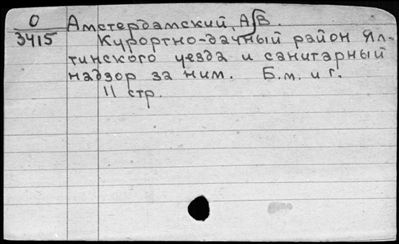 О
3415
Амстердамский, А. В.
Курортно-дачный район Ял-
тинского уезда и санитарный
надзор за ним. Б.м. и г.
11 стр.